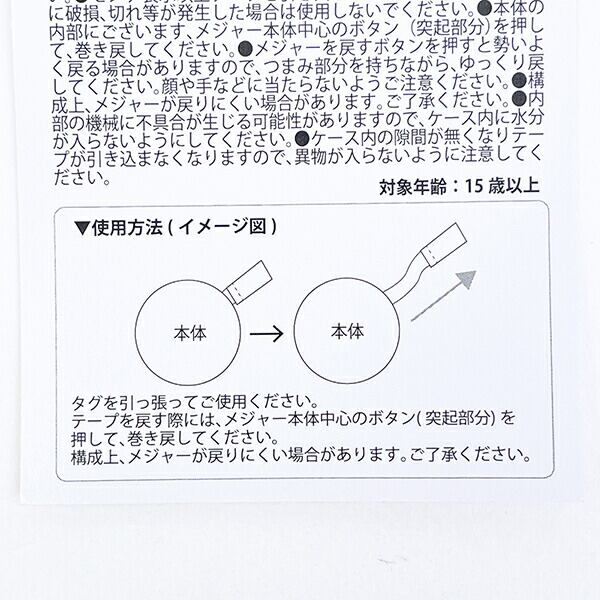 に破損、切れ等が発生した場合は使用しないでください。●本体の
内部にございます、メジャー本体中心のボタン（突起部分）を押し
て、巻き戻してください。●メジャーを戻すボタンを押すと勢いよ
く戻る場合がありますので、つまみ部分を持ちながら、ゆっくり戻
してください。顔や手などに当たらないようご注意ください。●構
成上、メジャーが戻りにくい場合があります。ご了承ください。●内
部の機械に不具合が生じる可能性がありますので、ケース内に水分
が入らないようにしてください。●ケース内の隙間が無くなりテー
プが引き込まなくなりますので、異物が入らないように注意してく
ださい。
対象年齢：15歳以上
▼使用方法(イメージ図)
本体
本体
タグを引っ張ってご使用ください。
テープを戻す際には、メジャー本体中心のボタン(突起部分)を
押して、巻き戻してください。
構成上、メジャーが戻りにくい場合があります。ご了承ください。